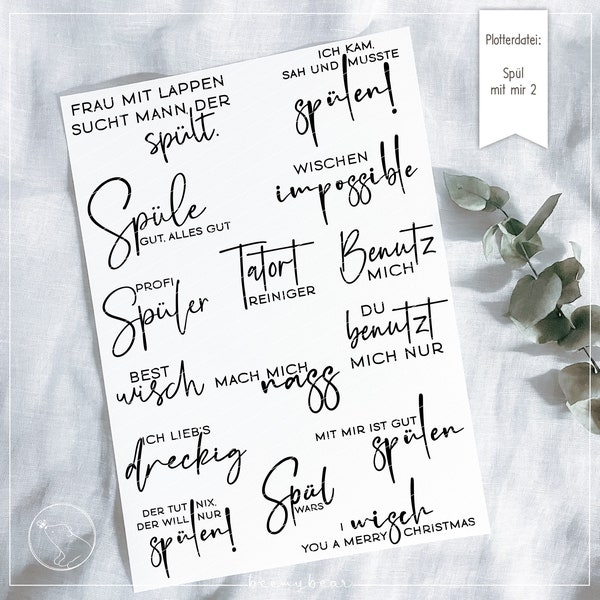 Plotterdatei:
Spül
mit mir 2
FRAU MIT LAPPEN
SUCHT MANN, DER
spült.
ICH KAM,
SAH UND MUSSTE
spülen!
WISCHEN
impossible
Spüle
GUT. ALLES GUT
Tatort
REINIGER
Benutz
MICH
PROFI
Spüler
DU
benutzt
MICH NUR
BEST
wisch
MACH MICH
nass
ICH LIEB'S
dreckig
MIT MIR IST GUT
spülen
DER TUT NIX,
DER WILL NUR
spülen!
Spül
WARS
I wisch
YOU A MERRY CHRISTMAS
beemybear